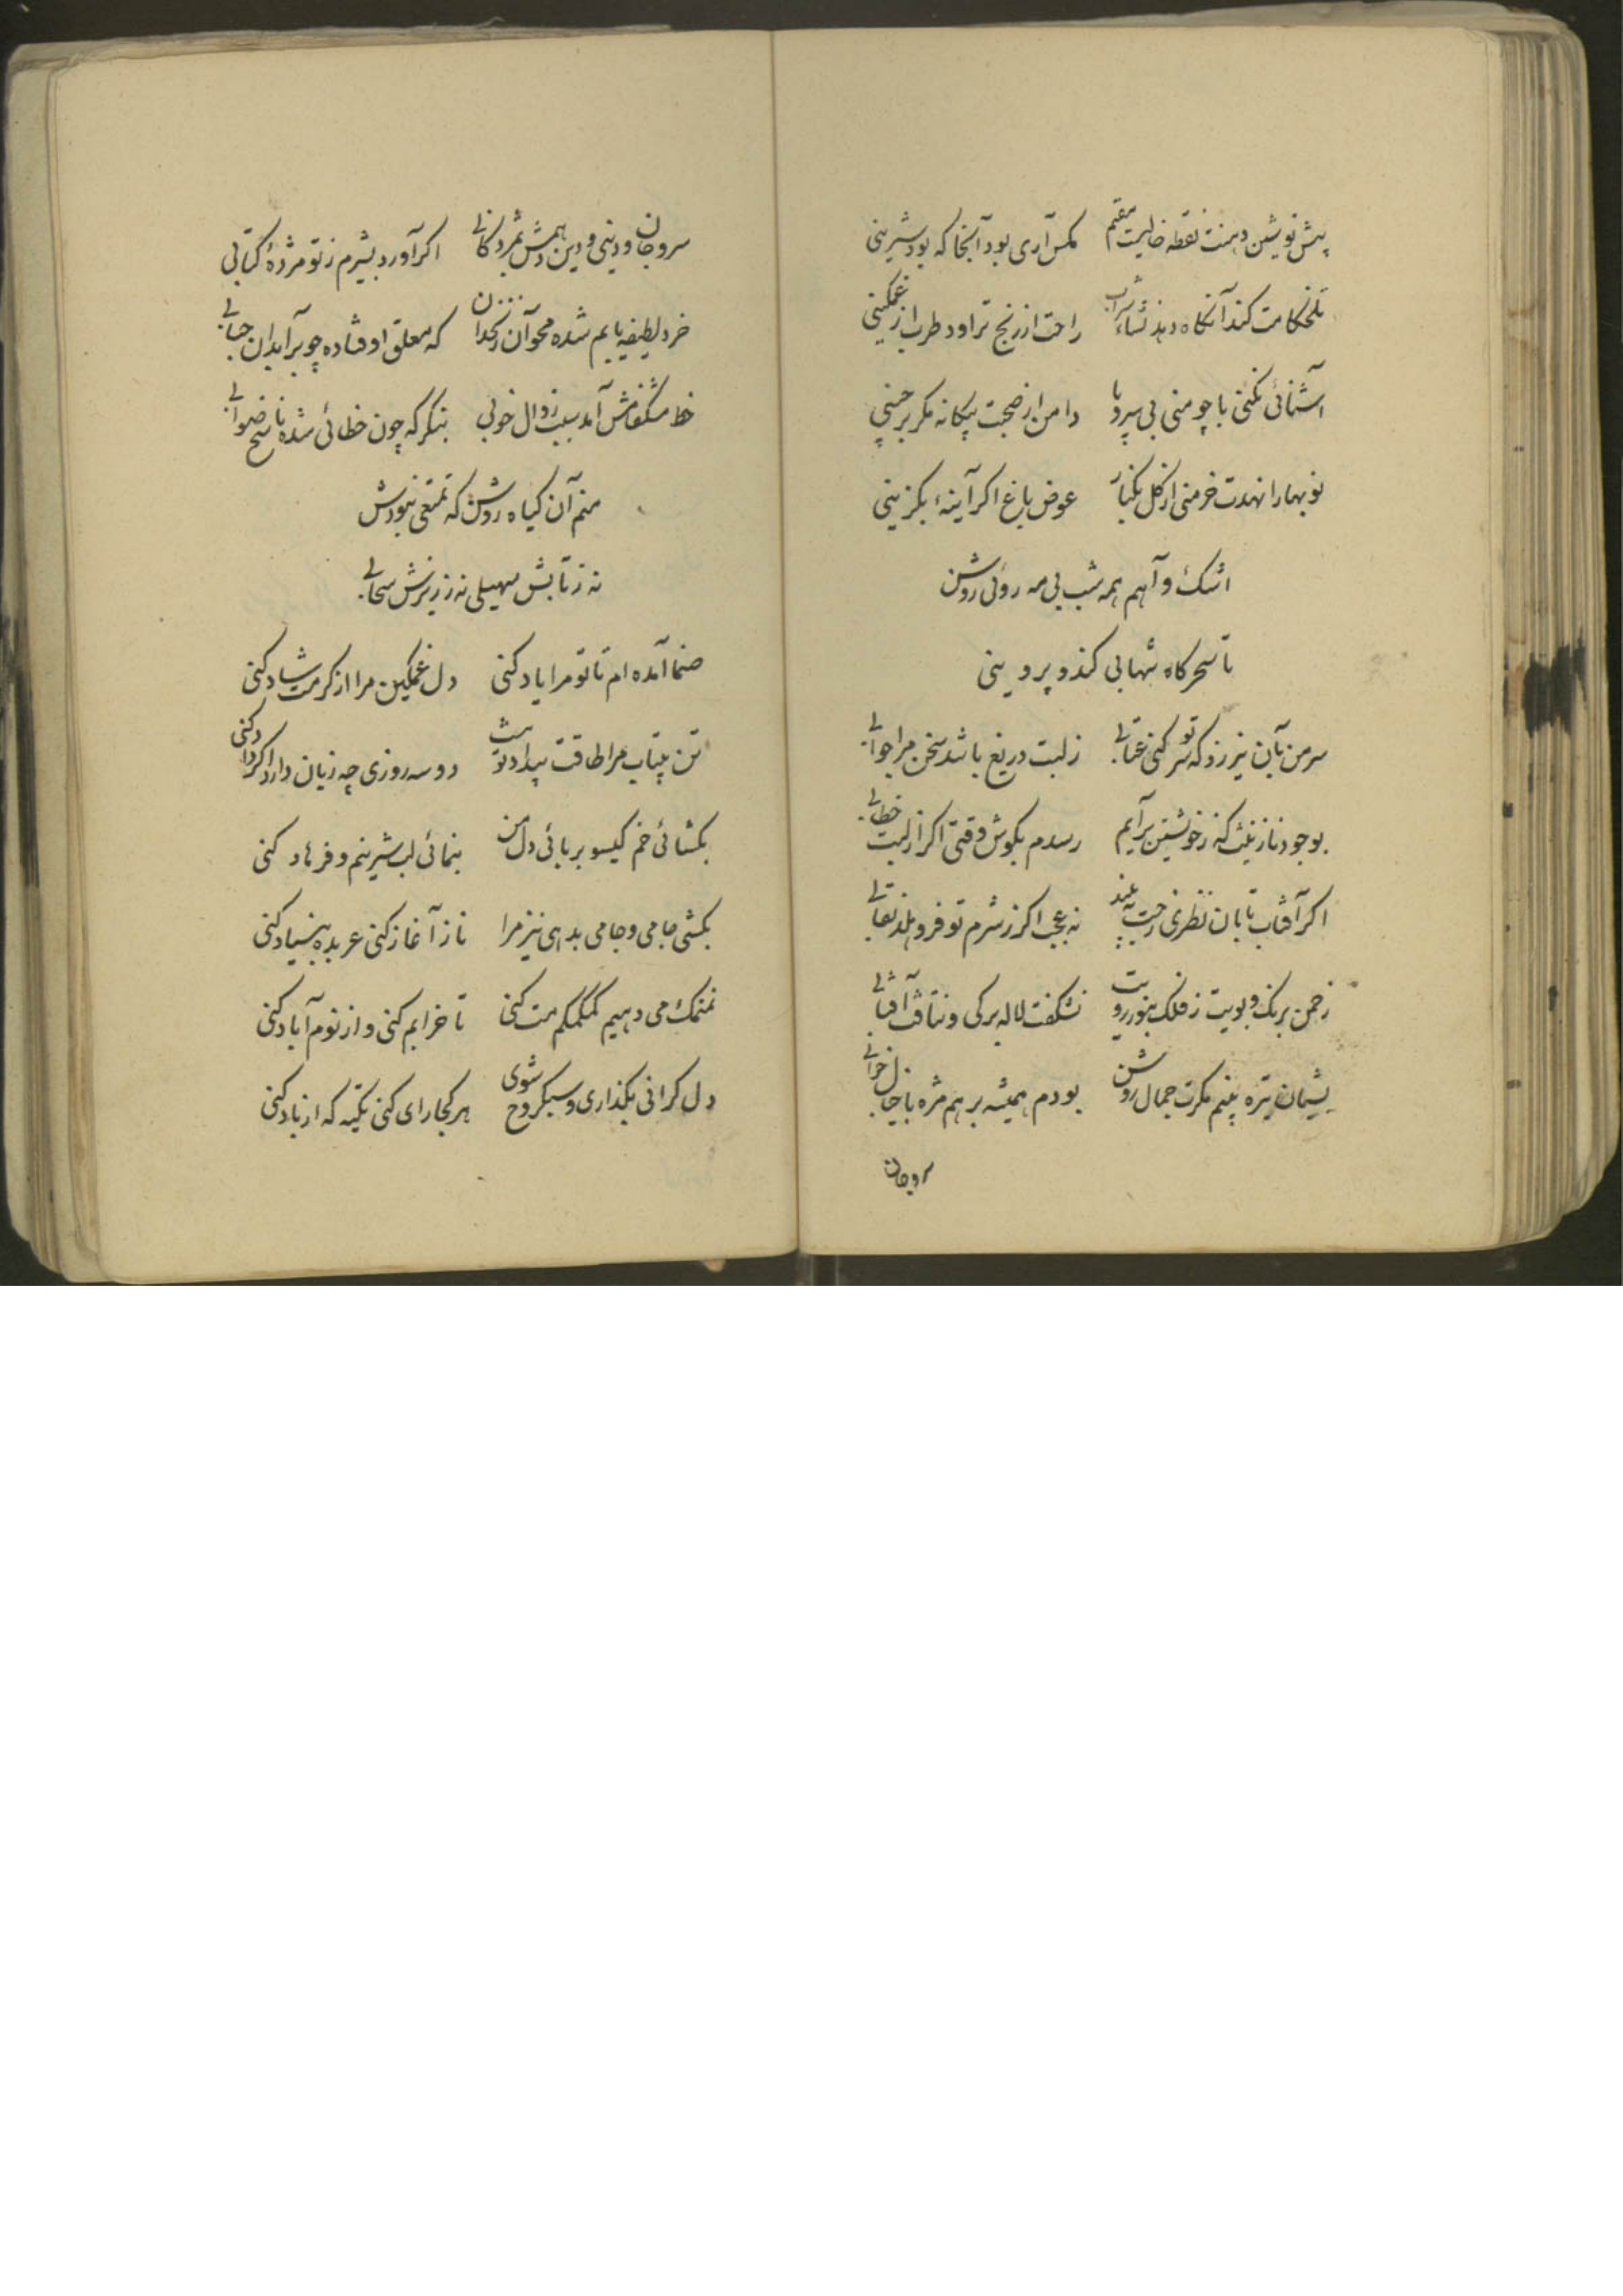 پیش نوشین دهنت نقطه خالیست مقیم مگس آری بود آنجا که بود شیرینی
تلخکامت کند آنگاه دهد نشاء شراب راحت از رنج تراود طرب از غمگینی
آشنائی نکنی با چو منی بی سر و پا دامن از صحبت بیگانه مگر برچینی
نوبهارا نهدت خرمنی از گل بکنار عوض باغ اگر آینهٔ بگزینی
اشک و آهم همه شب بی مه روئی روشن
تا سحرگاه شهابی کند و پروینی
سر من بآن نیرزد که تو سر کنی عتابی ز لبت دریغ باشد سخن مرا جوابی
بوجود نازنینت که ز خویشتن برآیم رسدم بگوش وقتی اگر از لبت خطابی
اگر آفتاب تابان نظری رخت به بیند نه عجب اگر ز شرم تو فرو هلد نقابی
ز چمن برنگ و بویت ز فلک بنور رویت نشکفت لاله برگی و نتافت آفتابی
بودم همیشه بر هم مژه با خیال خوابی
سر و جان
سر و جان و دینی و دین همش اگر آورد بشیرم ز تو مژدهٔ کتابی
خرد لطیفه یابم شده محو آن که معلق اوفتاده چو بر آبدان حبابی
خط مشکفامش آمد سبب زوال خوبی بنگر که چون خطائی شده ناسخ صوابی
منم آن گیاه روشن که تمتعی نبودش
نه ز تابش سهیلی نه ز ریزش سحابی
صنما آمده ام تا تو مرا یاد کنی دل غمگین مرا از کرمت شاد کنی
تن بیتاب مرا طاقت بیداد تو دو سه روزی چه زیان دارد اگر داد کنی
بگشائی خم گیسو بربائی دل من بنمائی لب شیرینم و فرهاد کنی
بکشی جامی و جامی بدهی نیز مرا ناز آغاز کنی عربده بنیاد کنی
نمنمک می دهیم کمکمکم مست کنی تا خرابم کنی و از نوم آباد کنی
دل گرانی بگذاری و سبکروح شوی هر کجا رای کنی تکیه که از باد کنی